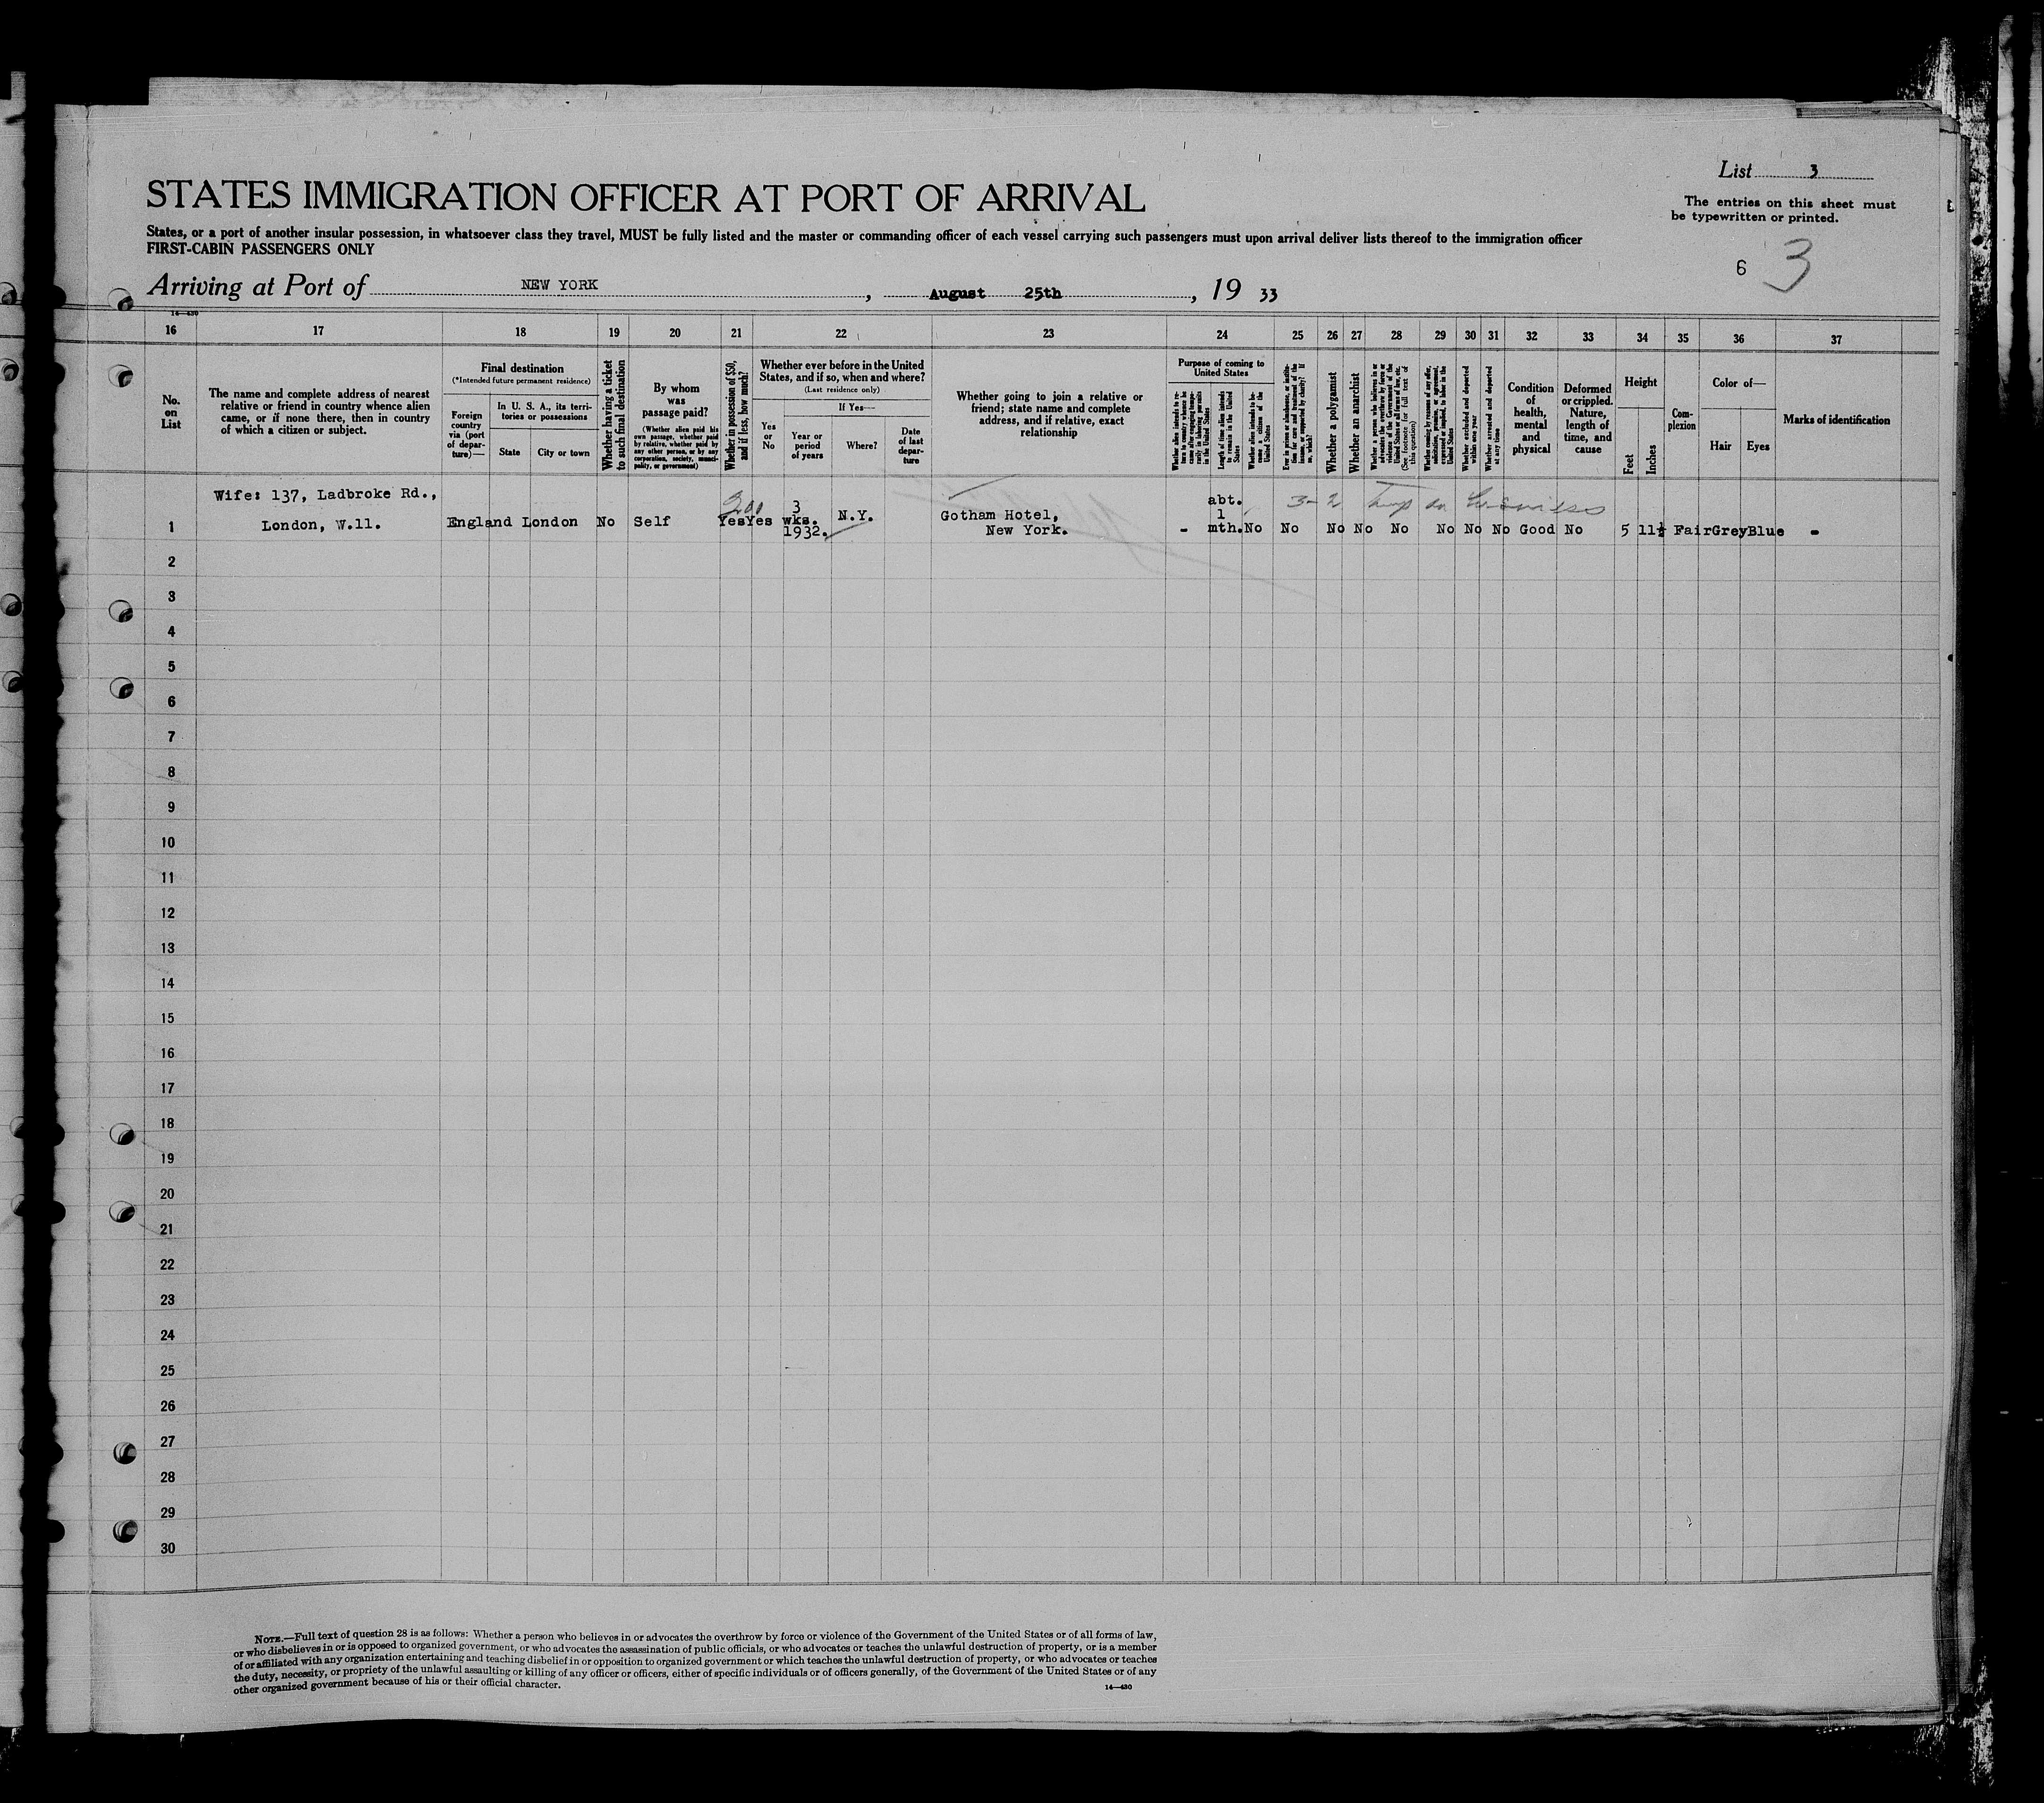 List 3
STATES IMMIGRATION OFFICER AT PORT OF ARRIVAL
The entries on this sheet must
be typewritten or printed.
States, or a port of another insular possession, in whatsoever class they travel, MUST be fully listed and the master or commanding officer of each vessel carrying such passengers must upon arrival deliver lists thereof to the immigration officer
FIRST-CABIN PASSENGERS ONLY
6 3
Arriving at Port of NEW YORK, August 25th, 19 33
14-430
16 17 18 19 20 21 22 23 24 25 26 27 28 29 30 31 32 33 34 35 36 37
No.
on
List
The name and complete address of nearest
relative or friend in country whence alien
came, or if none there, then in country
of which a citizen or subject.
Final destination
(*Intended future permanent residence)
Foreign
country
via (port
of depar-
ture)—
In U. S. A., its terri-
tories or possessions
State
City or town
Whether having a ticket
to such final destination
By whom
was
passage paid?
(Whether alien paid his
own passage, whether paid
by relative, whether paid by
any other person, or by any
corporation, society, munici-
pality, or government)
Whether in possession of $50,
and if less, how much?
Whether ever before in the United
States, and if so, when and where?
(Last residence only)
Yes
or
No
If Yes—
Year or
period
of years
Where?
Date
of last
depar-
ture
Whether going to join a relative or
friend; state name and complete
address, and if relative, exact
relationship
Purpose of coming to
United States
Whether alien intends to re-
turn to country whence he
came after engaging tempo-
rarily in laboring pursuits
in the United States
Length of time alien intends
to remain in the United
States
Whether alien intends to be-
come a citizen of the
United States
Ever in prison or almshouse, or institu-
tion for care and treatment of the
insane, or supported by charity? If
so, which?
Whether a polygamist
Whether an anarchist
Whether a person who believes in or
advocates the overthrow by force or
violence of the Government of the
United States or all forms of law, etc.
(See footnote for full text of
this question)
Whether coming by reason of any offer,
solicitation, promise, or agreement,
expressed or implied, to labor in the
United States
Whether excluded and deported
within one year
Whether arrested and deported
at any time
Condition
of
health,
mental
and
physical
Deformed
or crippled.
Nature,
length of
time, and
cause
Height
Feet
Inches
Com-
plexion
Color of—
Hair
Eyes
Marks of identification
Wife: 137, Ladbroke Rd.,
London, W.11.
1 England London No Self Yes Yes 3
wks.
1932. N.Y.
200
Gotham Hotel,
New York.
- abt.
1
mth. No No No No No No No No Good No 5 11½ Fair Grey Blue -
3-2 Temp on business
2
3
4
5
6
7
8
9
10
11
12
13
14
15
16
17
18
19
20
21
22
23
24
25
26
27
28
29
30
NOTE.—Full text of question 28 is as follows: Whether a person who believes in or advocates the overthrow by force or violence of the Government of the United States or of all forms of law,
or who disbelieves in or is opposed to organized government, or who advocates the assassination of public officials, or who advocates or teaches the unlawful destruction of property, or is a member
of or affiliated with any organization entertaining and teaching disbelief in or opposition to organized government or which teaches the unlawful destruction of property, or who advocates or teaches
the duty, necessity, or propriety of the unlawful assaulting or killing of any officer or officers, either of specific individuals or of officers generally, of the Government of the United States or of any
other organized government because of his or their official character.
14—430